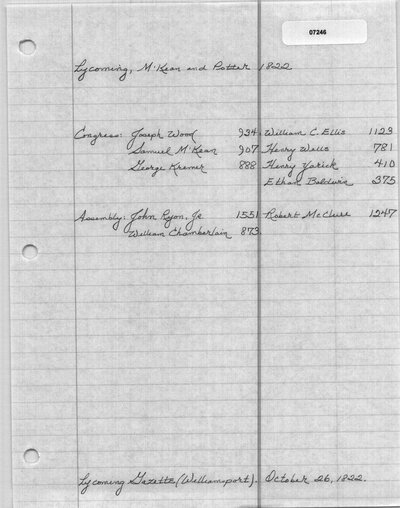 07246
Lycoming, McKean and Potter 1822
Congress: Joseph Wood 934 William C. Ellis 1123
Samuel McKean 907 Henry Wells 781
George Kremer 888 Henry Yarick 410
Ethan Baldwin 375
Assembly: John Ryon, Jr 1551 Robert McClure 1247
William Chamberlain 873
Lycoming Gazette (Williamsport). October 26, 1822.